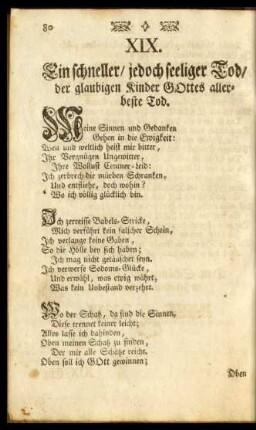 80
XIX.
Ein schneller/ jedoch seeliger Tod/
der glaubigen Kinder GOttes aller-
beste Tod.
Meine Sinnen und Gedancken
Gehen in die Ewigkeit:
und weltlich heist mir bitter,
Ihr Vergnügen Ungewitter,
Ihre Wollust Centner-leid:
Ich zerbrech die mürben Schrancken,
Und entfliehe, doch wohin?
Wo ich völlig glücklich bin.
Ich zerreisse Babels-Stricke,
Mich verführt kein falscher Schein,
Ich verlange keine Gaben,
So die Hölle bey sich haben;
Ich mag nicht getäuschet seyn.
Ich verwerfe Sodoms-Glücke,
Und erwähl, was ewig währet,
Was kein Unbestand verzehrt.
Wo der Schatz, da sind die Sinnen,
Diese trennet keiner leicht;
Alles lasse ich dahinden,
Oben meinen Schatz zu finden,
Der mir alle Schätze reicht.
Oben soll ich GOtt gewinnen;
Oben